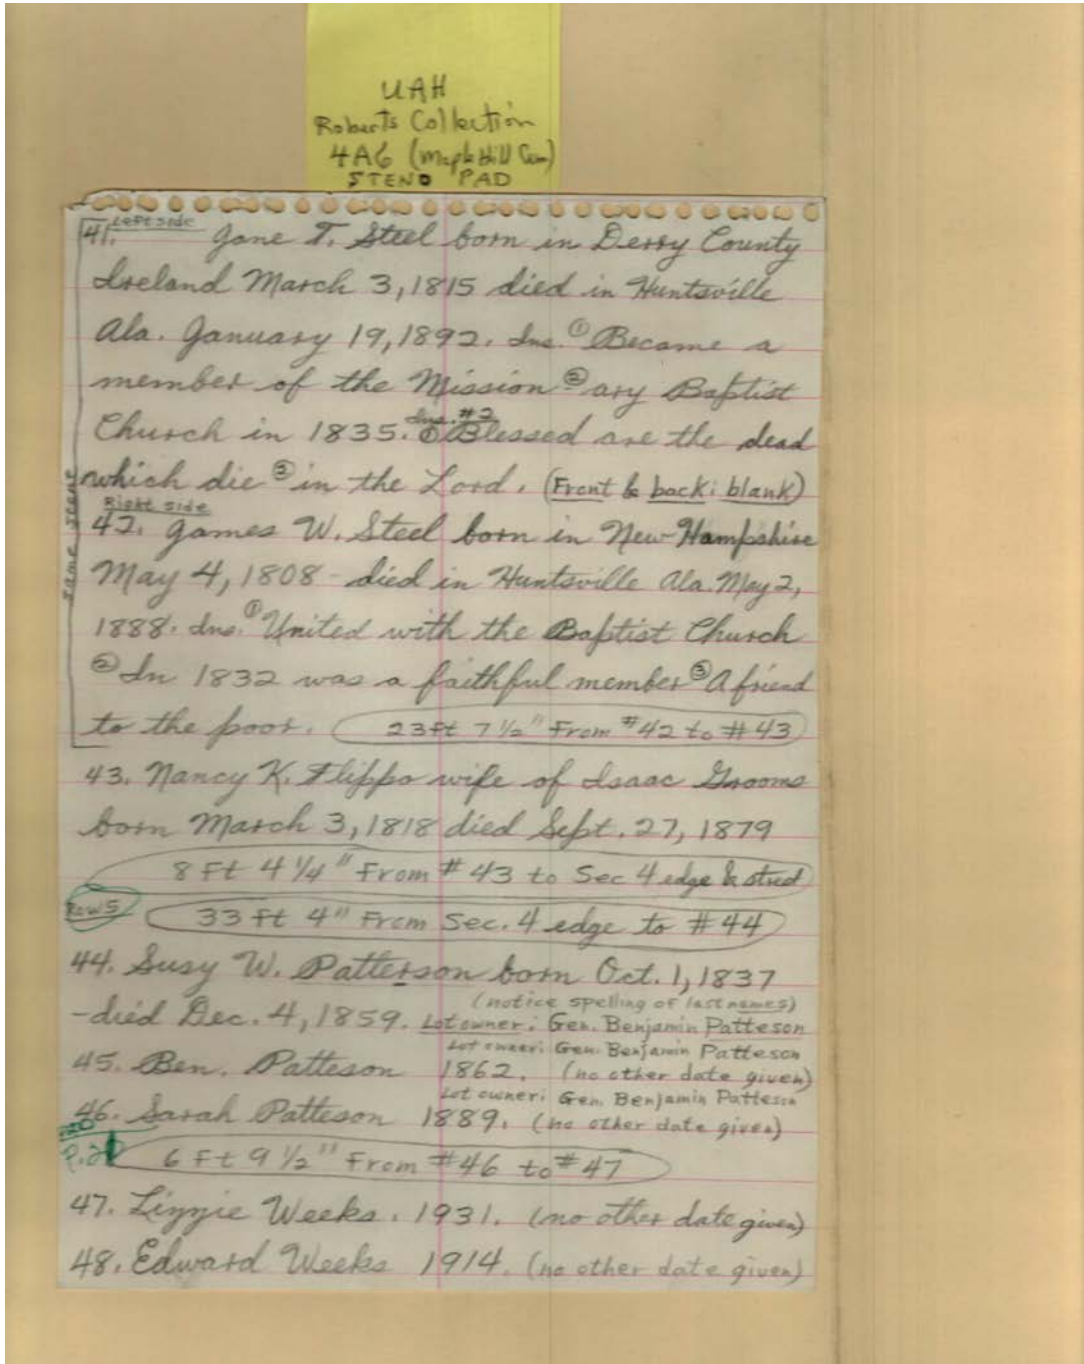 UAH
Roberts Collection
4A6 (Maple Hill Cem)
STENO PAD
Left side
41. Jane T. Steel born in Derry County
Ireland March 3, 1815 died in Huntsville
Ala. January 19, 1892. Ins. ① Became a
member of the Mission ② ary Baptist
Church in 1835. Ins. #2 ① Blessed are the dead
which die ② in the Lord. (Front & back: blank)
same stone
Right side
42. James W. Steel born in New Hampshire
May 4, 1808 - died in Huntsville Ala. May 2,
1888. Ins. ① United with the Baptist Church
② In 1832 was a faithful member ③ A friend
to the poor. 23 ft 7 1/2" From #42 to #43
43. Nancy K. Flippo wife of Isaac Grooms
born March 3, 1818 died Sept. 27, 1879
8 Ft 4 1/4" From #43 to Sec 4 edge & stud
Row 5 33 Ft 4" From Sec. 4 edge to #44
44. Susy W. Patterson born Oct. 1, 1837
(notice spelling of last names)
- died Dec. 4, 1859. Lot owner: Gen. Benjamin Patteson
Lot owner: Gen. Benjamin Patteson
45. Ben. Patteson 1862. (no other date given)
Lot owner: Gen. Benjamin Patteson
46. Sarah Patteson 1889. (no other date given)
6 Ft 9 1/2" From #46 to #47
47. Lizzie Weeks. 1931. (no other date given)
48. Edward Weeks 1914. (no other date given)